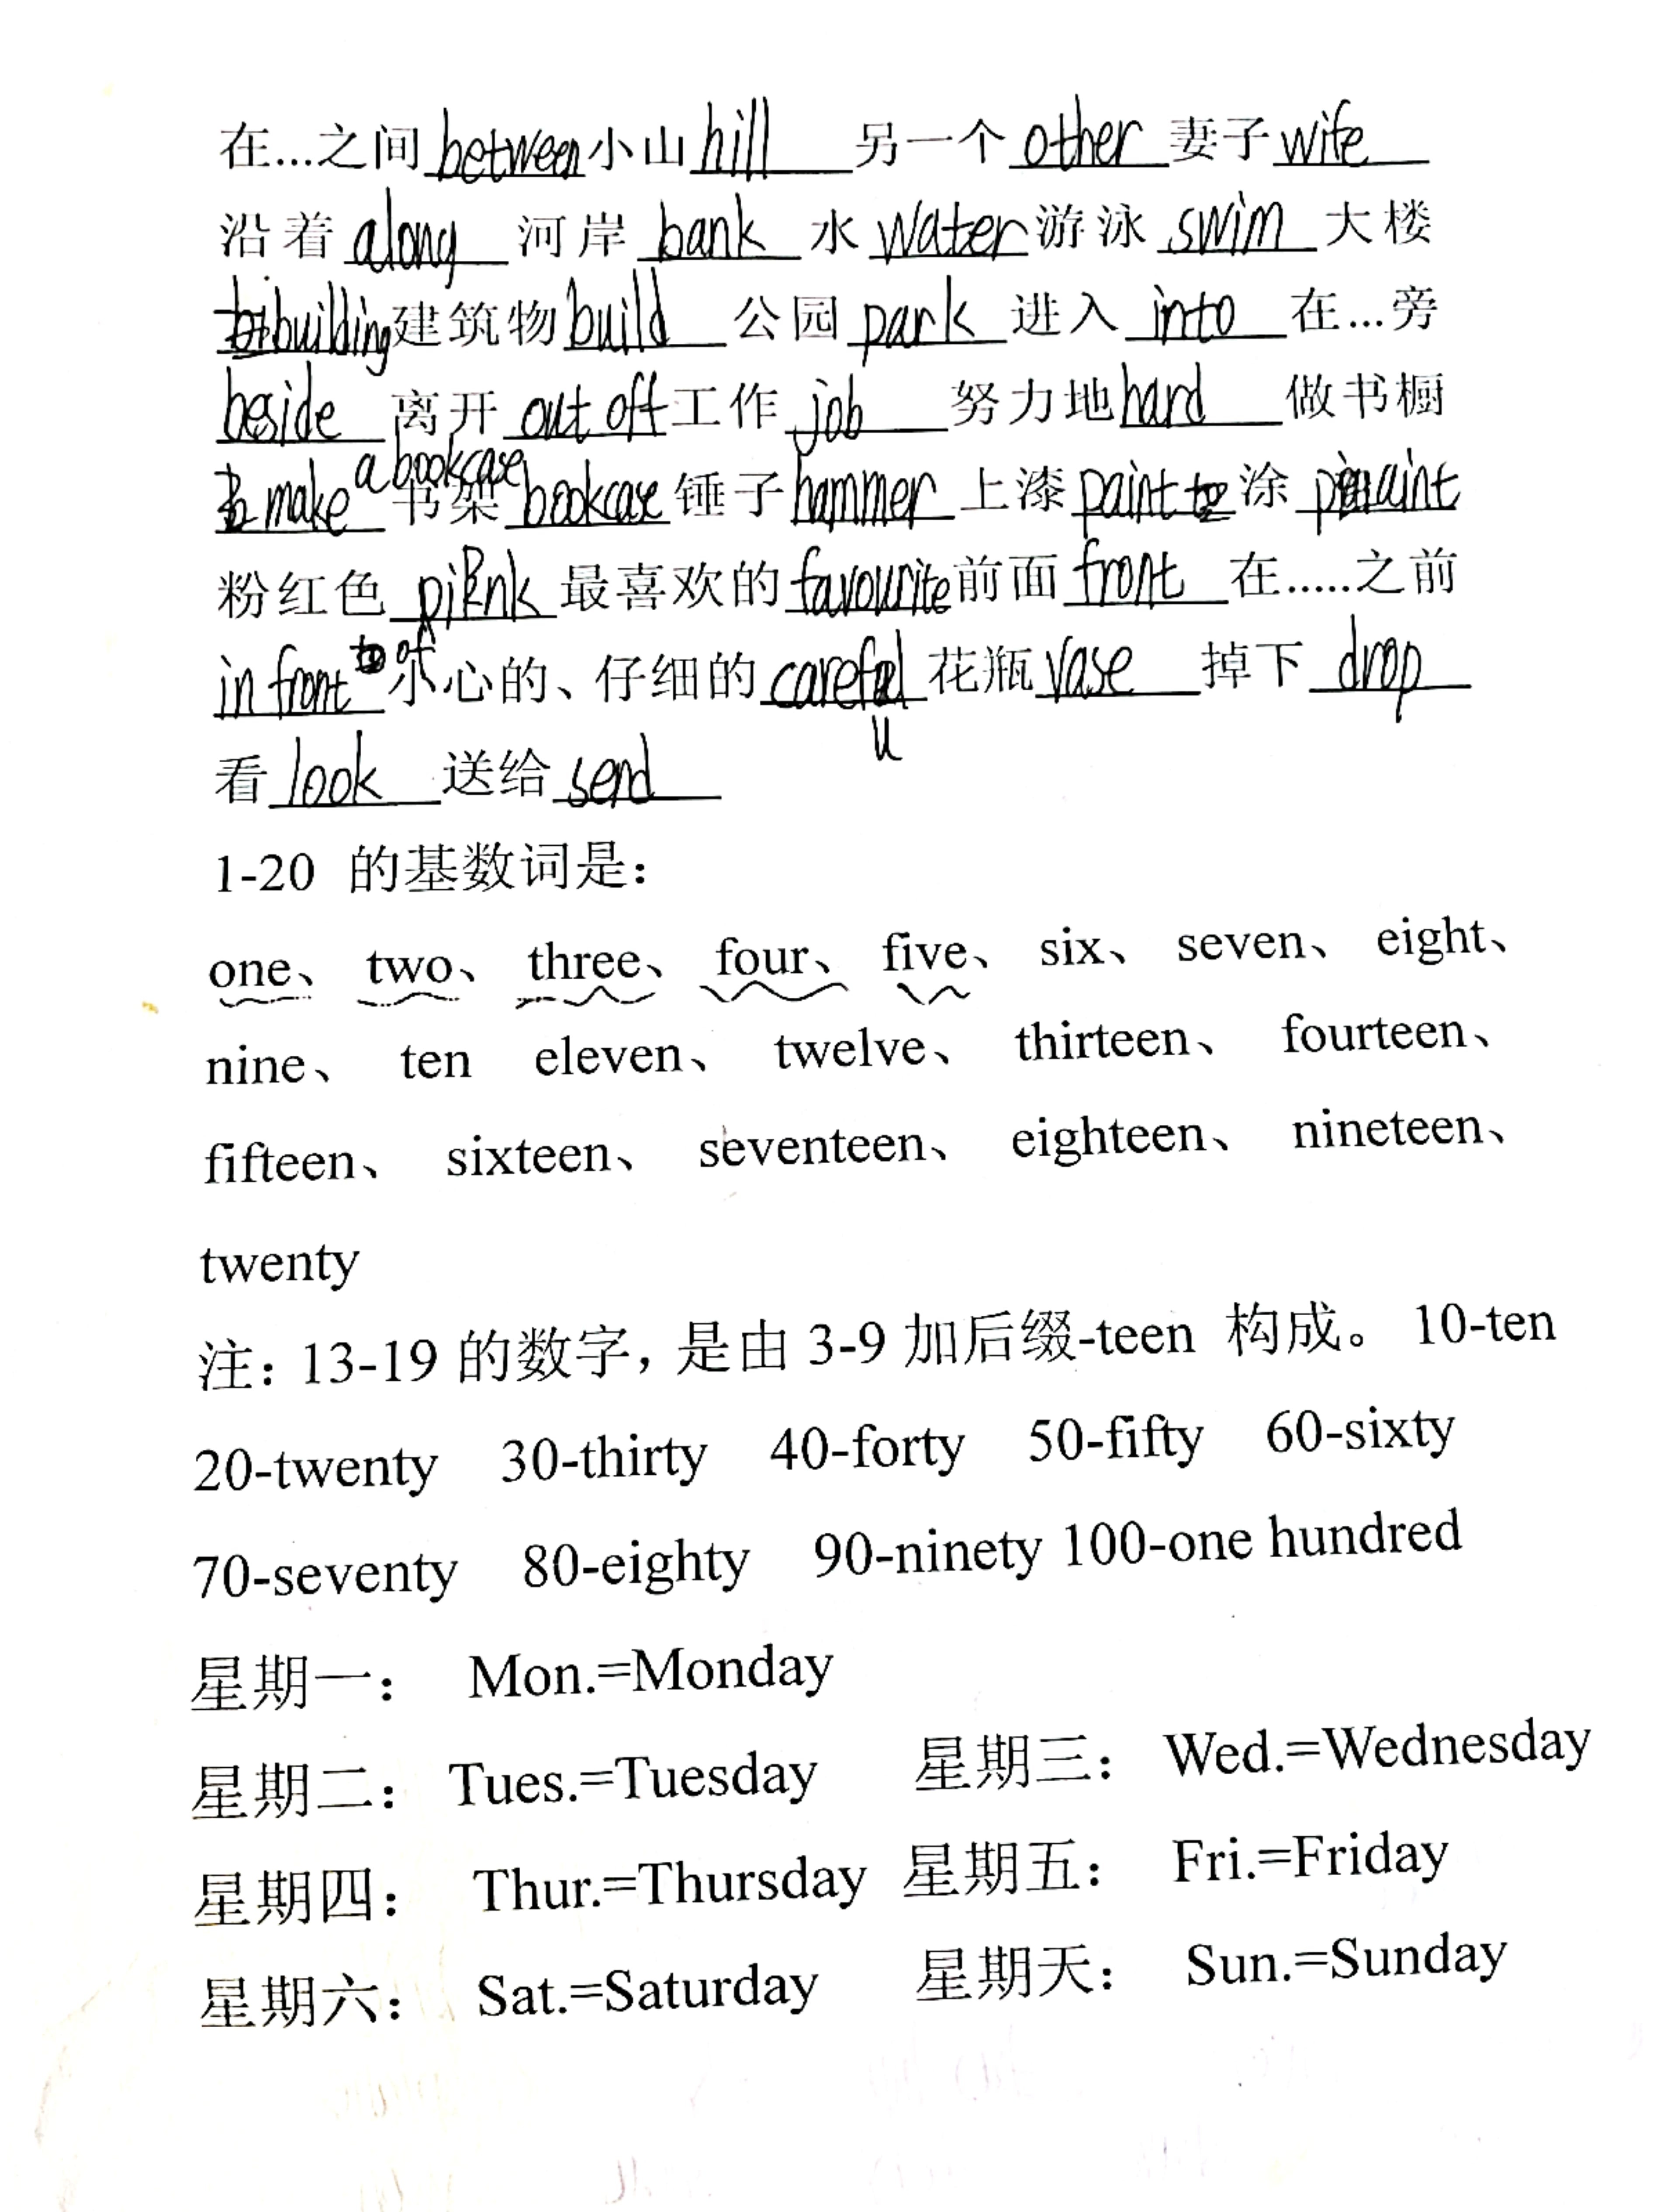 在...之间 between 小山 hill 另一个 other 妻子 wife
沿着 along 河岸 bank 水 water 游泳 swim 大楼
building 建筑物 build 公园 park 进入 into 在...旁
beside 离开 out off 工作 job 努力地 hard 做书橱
make a bookcase 书架 bookcase 锤子 hammer 上漆 paint 涂 paint
粉红色 pink 最喜欢的 favourite 前面 front 在.....之前
in front of 小心的、仔细的 careful 花瓶 vase 掉下 drop
看 look 送给 send
1-20 的基数词是：
one、 two、 three、 four、 five、 six、 seven、 eight、
nine、 ten eleven、 twelve、 thirteen、 fourteen、
fifteen、 sixteen、 seventeen、 eighteen、 nineteen、
twenty
注：13-19 的数字，是由 3-9 加后缀-teen 构成。 10-ten
20-twenty 30-thirty 40-forty 50-fifty 60-sixty
70-seventy 80-eighty 90-ninety 100-one hundred
星期一： Mon.=Monday
星期二： Tues.=Tuesday 星期三： Wed.=Wednesday
星期四： Thur.=Thursday 星期五： Fri.=Friday
星期六： Sat.=Saturday 星期天： Sun.=Sunday